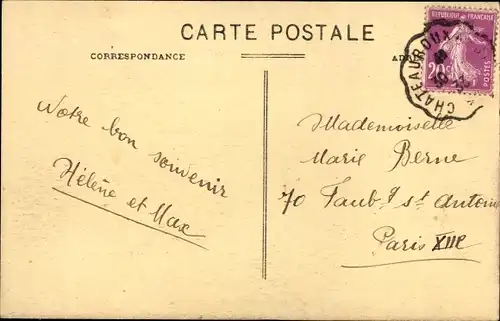 CARTE POSTALE
CORRESPONDANCE
RÉPUBLIQUE FRANÇAISE
20c
POSTES
CHATEAUROUX
Notre bon
souvenir
Hélène et Max
Mademoiselle
Marie Berne
70 Faubg st Antoine
Paris XIIe